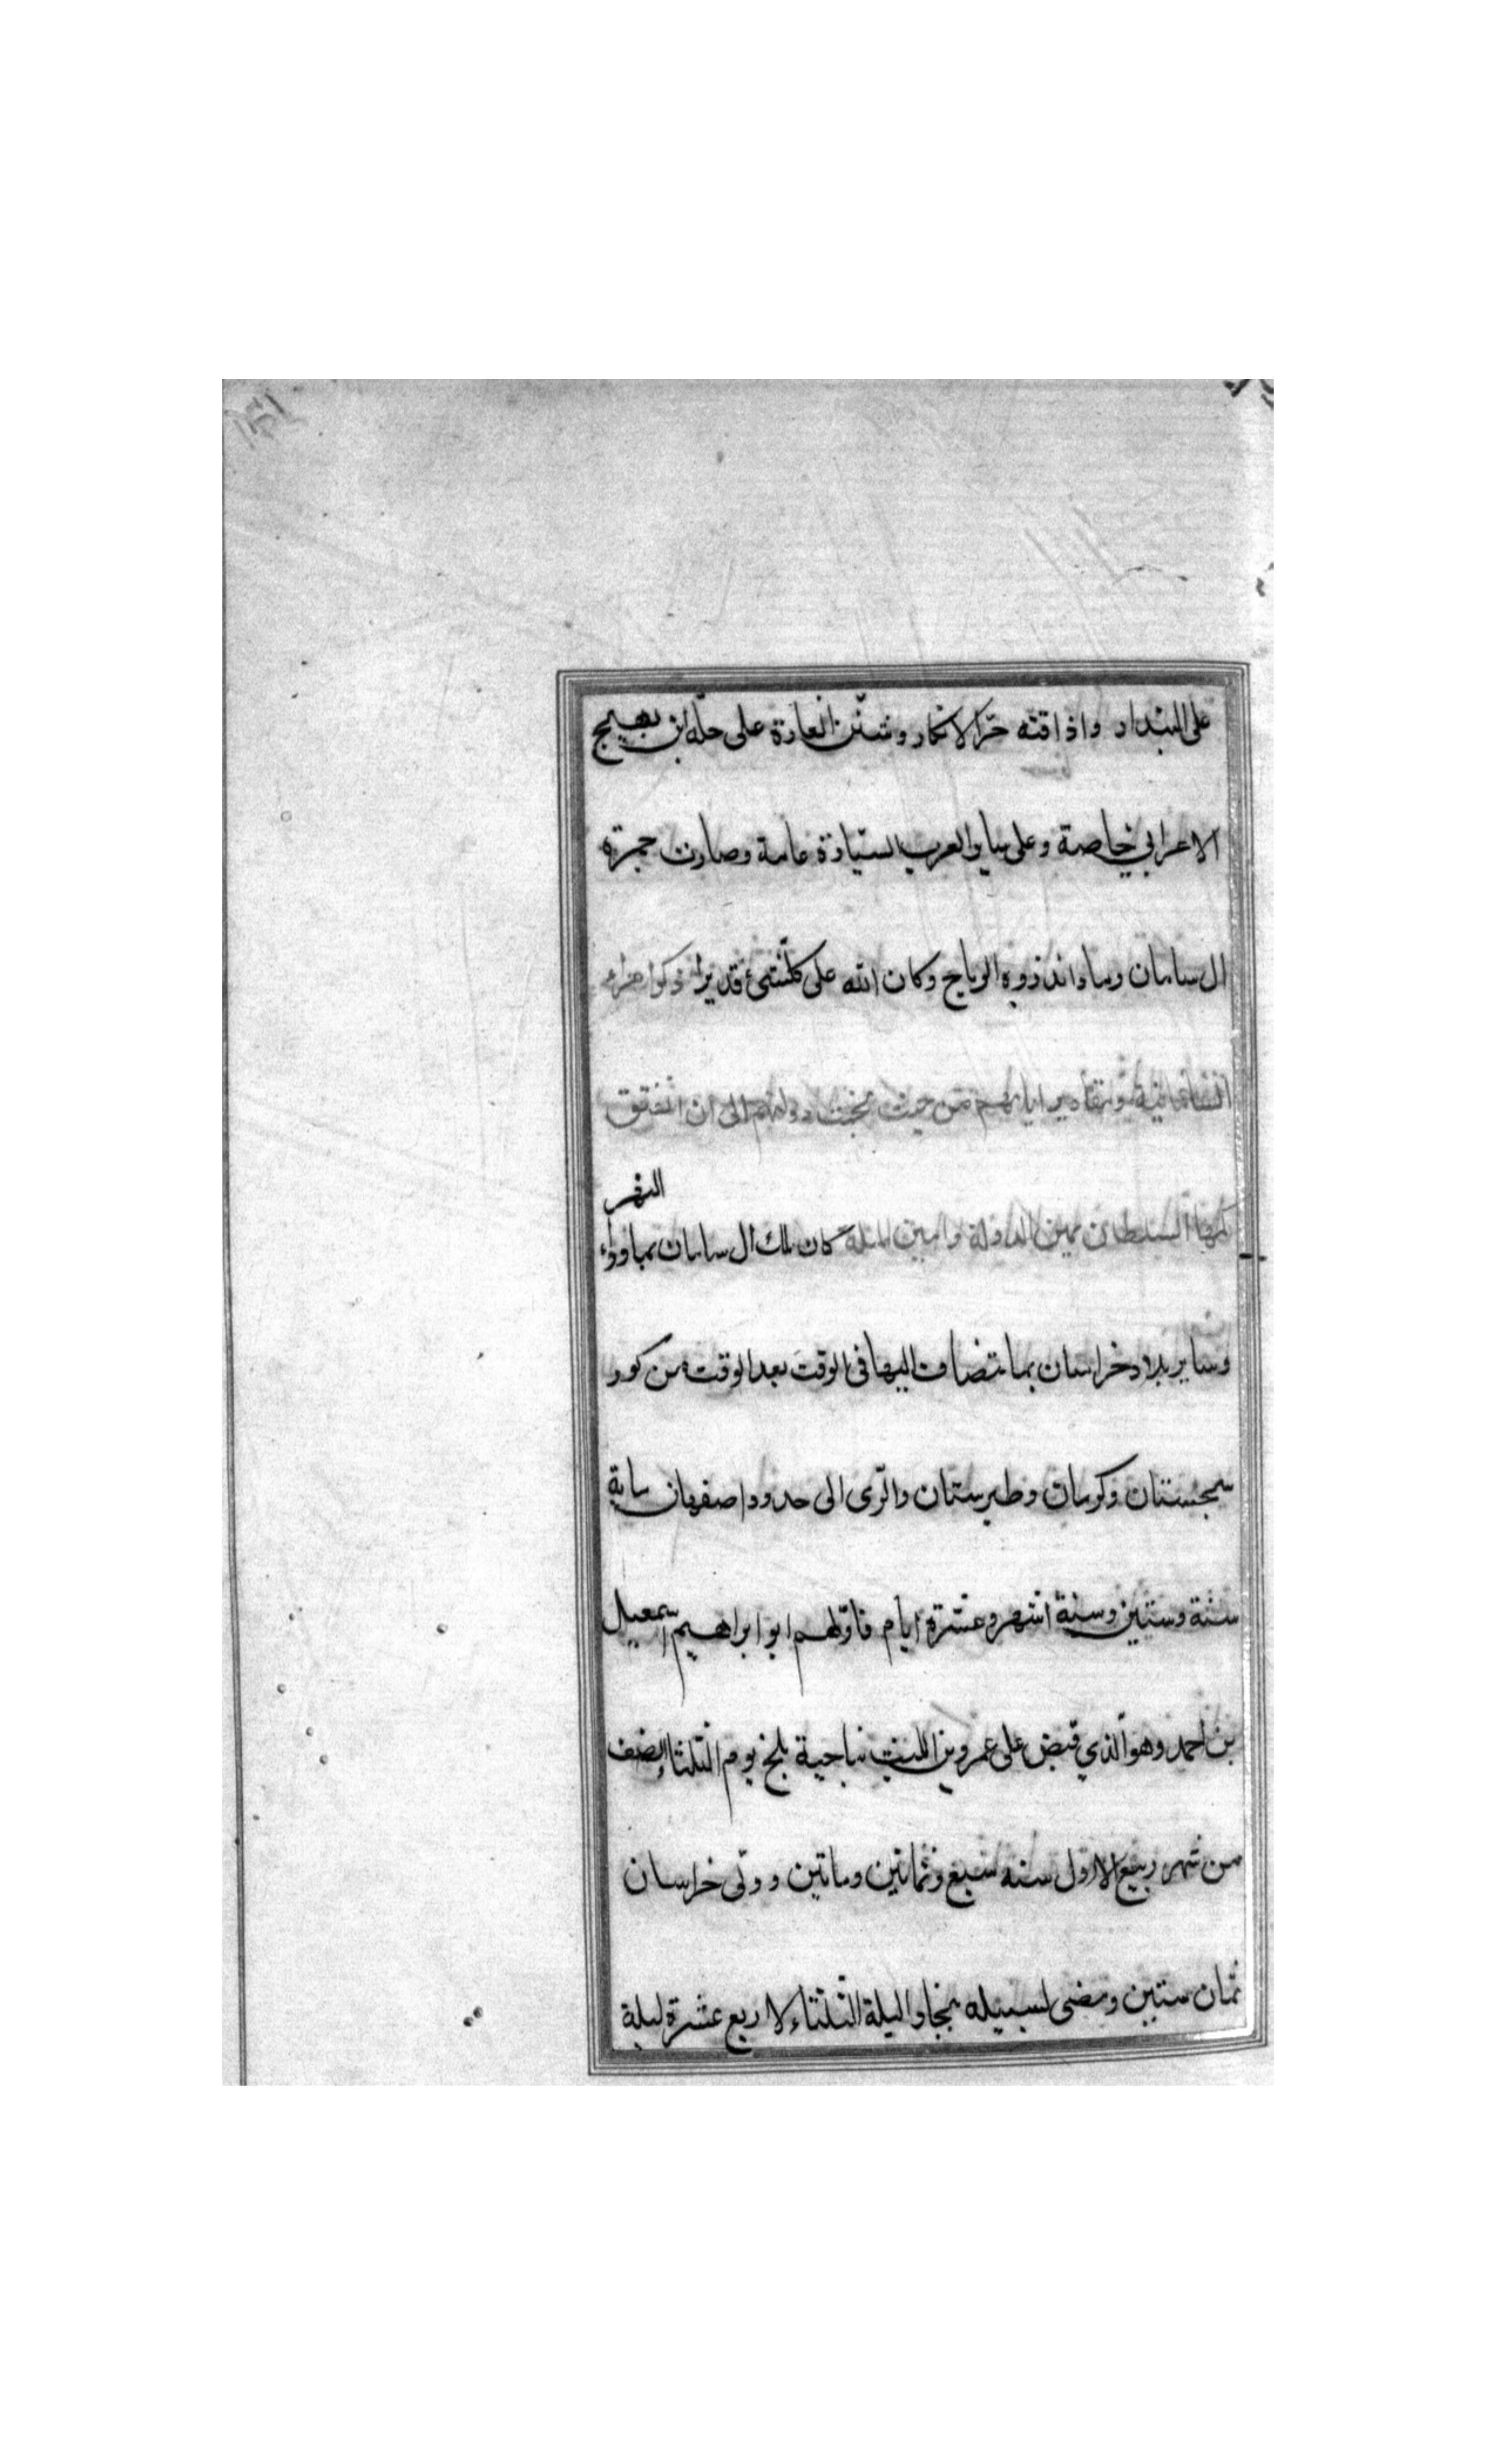 على البنداد واذاقته حرّ الانكار وشنّن الغارة على حلّة ابن بهيج
الاعرابي خاصة وعلى سائر العرب السيّارة عامة وصارت جمرة
ال سامان رمادا تذروه الرياح وكان الله على كلّ شئ قديرا ذكر امراء
السامانية ومقادير ايامهم من حيث نجمت دولتهم الى ان اتفق
النهر
السلطان يمين الدولة وامين الملة كان ملك ال سامان بماوراء
وساير بلاد خراسان بما يتضاف اليها في الوقت بعد الوقت من كور
سجستان وكرمان وطبرستان والرّى الى حدود اصفهان ماية
سنة وستين وستة اشهر وعشرة ايام فاوّلهم ابو ابراهيم اسمعيل
بن احمد وهو الّذي قبض على عمرو بن الليث بناحية بلخ يوم الثلثاء النصف
من شهر ربيع الاول سنه سبع وثمانين وماتين وولّى خراسان
ثمان سنين ومضى لسبيله ببخارا ليلة الثلثاء لاربع عشرة ليلة